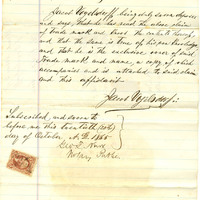 Jacob Vogelsdorff being duly sworn deposes
and says that he has read the above claim
of Trade mark and knows the contents thereof,
and that the same is true of his own knowledge
and that he is the exclusive owner of said
Trade mark and name, a copy of which
accompanies and is attached to said claim
and this affidavit
Jacob
Subscribed and sworn to
before me this twentieth (20th)
day of October A.D. 1865
Geo. T.
Notary Public